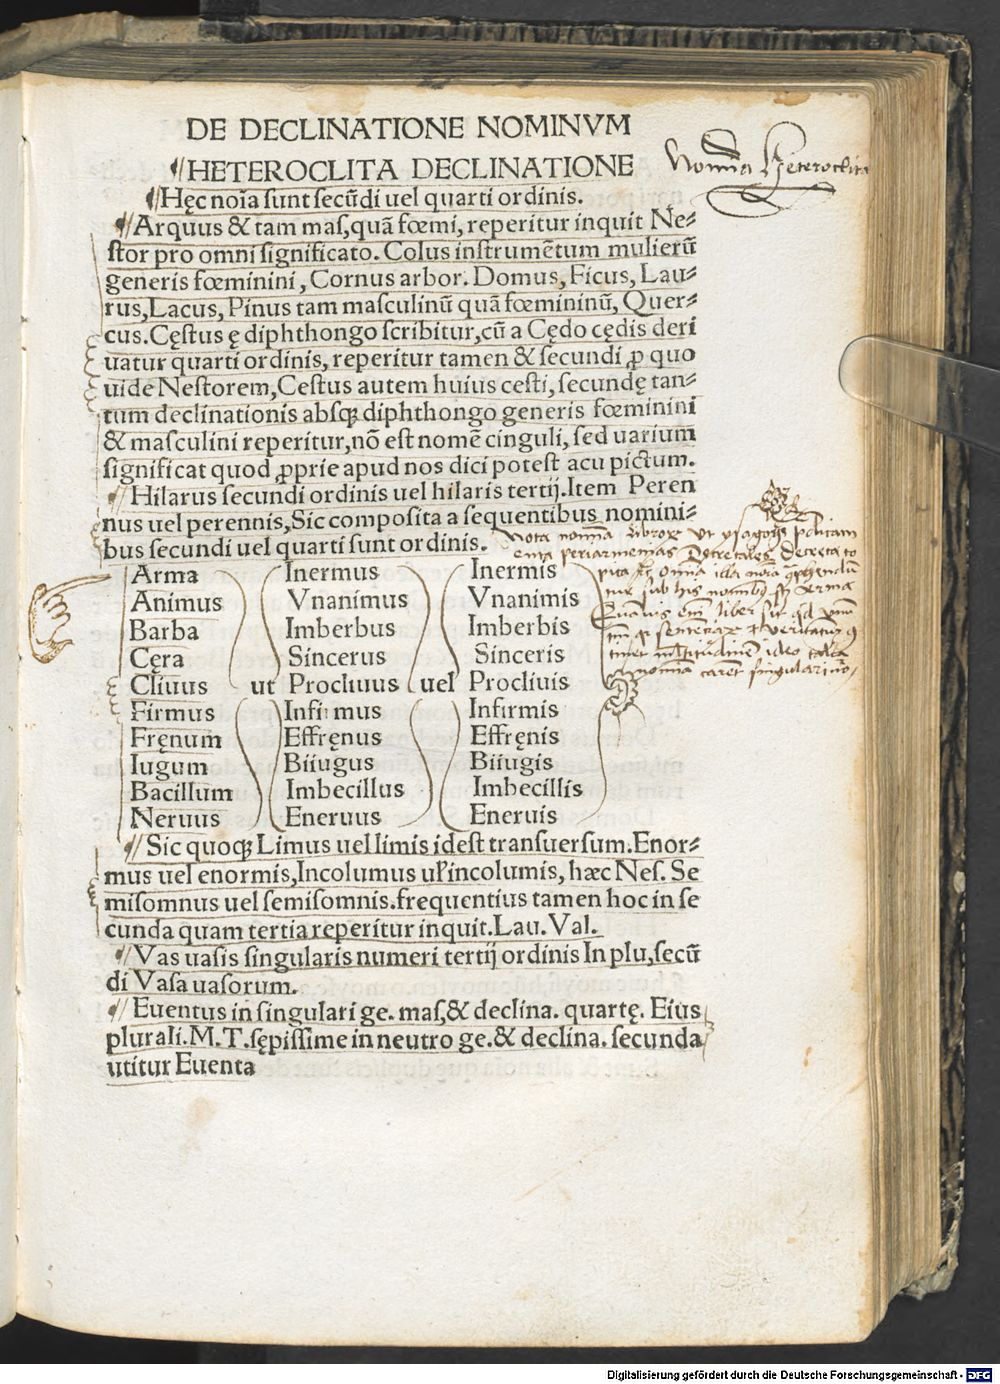 DE DECLINATIONE NOMINVM
HETEROCLITA DECLINATIONE
Nom̄na Heteroclita
Hęc noīa sunt secūdi uel quarti ordinis.
Arquus & tam mas, quā fœmi, reperitur inquit Ne-
stor pro omni significato. Colus instrumētum mulierū
generis fœminini, Cornus arbor. Domus, Ficus, Lau-
rus, Lacus, Pinus tam masculinū quā fœmininū, Quer-
cus. Cęstus ę diphthongo scribitur, cū a Cędo cędis deri
uatur quarti ordinis, reperitur tamen & secundi ꝓ quo
uide Nestorem, Cestus autem huius cesti, secundę tan-
tum declinationis absqꝫ diphthongo generis fœminini
& masculini reperitur, nō est nomē cinguli, sed uarium
significat quod ꝓprie apud nos dici potest acu pictum.
Hilarus secundi ordinis uel hilaris tertij. Item Peren
nus uel perennis, Sic composita a sequentibus nomini-
bus secundi uel quarti sunt ordinis.
Arma Inermus Inermis
Animus Vnanimus Vnanimis
Barba Imberbus Imberbis
Cęra Sincerus Sinceris
Cliuus ut Procliuus uel Procliuis
Firmus Infirmus Infirmis
Fręnum Effręnus Effręnis
Iugum Biiugus Biiugis
Bacillum Imbecillus Imbecillis
Neruus Eneruus Eneruis
Nota nom̄na libroꝝ ut
Decretales Decreta
omnia illa noīa
sub his
liber sit
ideo talia
nom̄na carēt singulari
Sic quoqꝫ Limus uel limis idest transuersum. Enor-
mus uel enormis, Incolumus ul' incolumis, hæc Nes. Se
misomnus uel semisomnis. frequentius tamen hoc in se
cunda quam tertia reperitur inquit. Lau. Val.
Vas uasis singularis numeri tertij ordinis In plu, secū
di Vasa uasorum.
Euentus in singulari ge. mas, & declina. quartę. Eius
plurali. M. T. sępissime in neutro ge. & declina. secunda
utitur Euenta
Digitalisierung gefördert durch die Deutsche Forschungsgemeinschaft - DFG